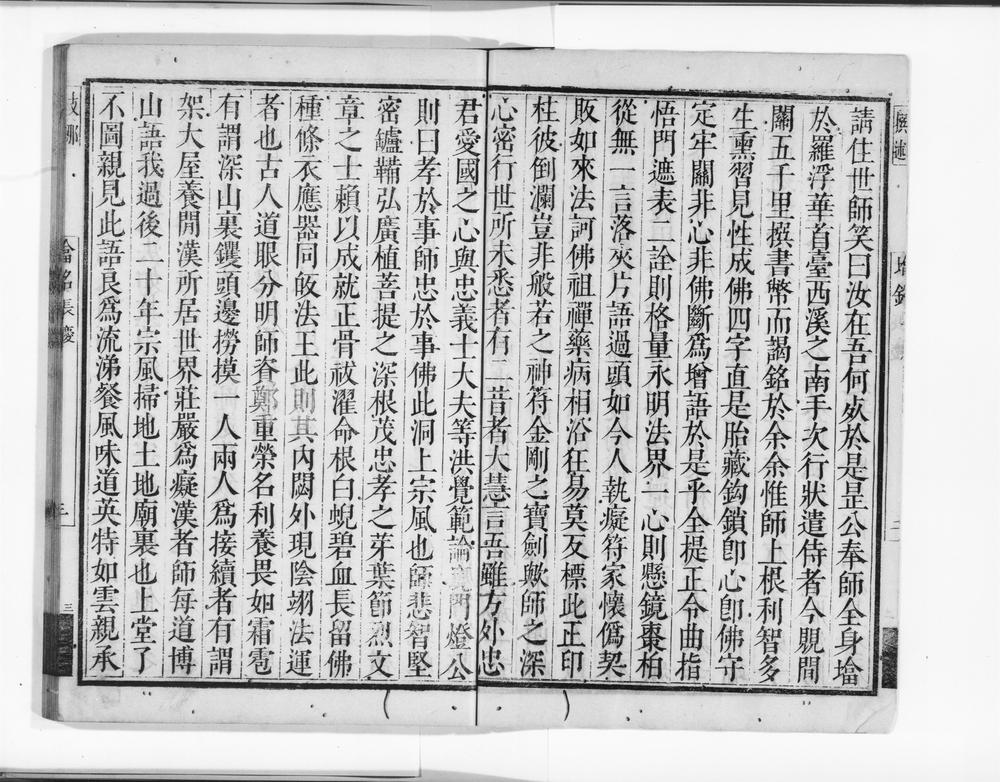 請住世師笑曰汝在吾何處於是昰公奉師全身墖
於羅浮華首臺西溪之南手次行狀遣侍者今覞間
關五千里撰書幣而謁銘於余余惟師上根利智多
生熏習見性成佛四字直是胎藏鈎鎖卽心卽佛守
定牢關非心非佛斷爲增語於是乎全提正令曲指
悟門遮表二詮則格量永明法界一心則懸鏡棗柏
從無一言落夾片語過頭如今人執癡符家懷僞契
敗如來法訶佛祖禪藥病相沿狂易莫反標此正印
柱彼倒瀾豈非般若之神符金剛之寶劍歟師之深
心密行世所未悉者有二昔者大慧言吾雖方外忠
君愛國之心與忠義士大夫等洪覺範論 門燈公
則曰孝於事師忠於事佛此洞上宗風也師悲智堅
密鑪鞴弘廣植菩提之深根茂忠孝之芽葉節烈文
章之士賴以成就正骨祓濯命根白蜺碧血長留佛
種條衣應器同皈法王此則其內閟外現陰翊法運
者也古人道眼分明師資鄭重榮名利養畏如霜雹
有謂深山裏钁頭邊撈摸一人兩人爲接續者有謂
架大屋養閒漢所居世界莊嚴爲癡漢者師每道博
山語我過後二十年宗風掃地土地廟裏也上堂了
不圖親見此語良爲流涕餐風味道英特如雲親承
墖銘長慶
三
三